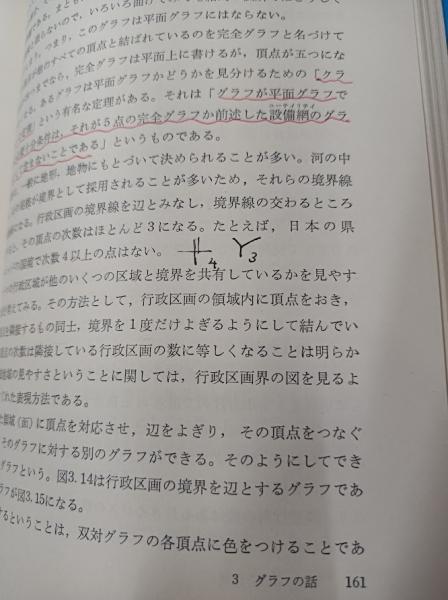 戻らないので、いろいろ
つまり、このグラフは平面グラフにはならない。
他のすべての頂点と結ばれているのを完全グラフと名づけて
までなら、完全グラフは平面上に書けるが、頂点が五つにな
あるグラフは平面グラフかどうかを見分けるための「クラ
」という有名な定理がある。それは「グラフが平面グラフで
条件は、それが5点の完全グラフか前述した設備網のグラ
ユーティリティ
ないことである」というものである。
一般に地形、地物にもとづいて決められることが多い。河の中
が境界として採用されることが多いため、それらの境界線
になる。行政区画の境界線を辺とみなし、境界線の交わるところ
と、その頂点の次数はほとんど3になる。たとえば、日本の県
次数4以上の点はない。
4 3
の行政区域が他のいくつの区域と境界を共有しているかを見やす
を考えてみる。その方法として、行政区画の領域内に頂点をおき、
隣接するもの同士、境界を1度だけよぎるようにして結んでい
の次数は隣接している行政区画の数に等しくなることは明らか
地域の見やすさということに関しては、行政区画界の図を見るよ
れた表現方法である。
領域(面)に頂点を対応させ、辺をよぎり、その頂点をつなぐ
そのグラフに対する別のグラフができる。そのようにしてでき
グラフという。図3.14は行政区画の境界を辺とするグラフであ
ラフが図3.15になる。
するということは、双対グラフの各頂点に色をつけることであ
3 グラフの話 161